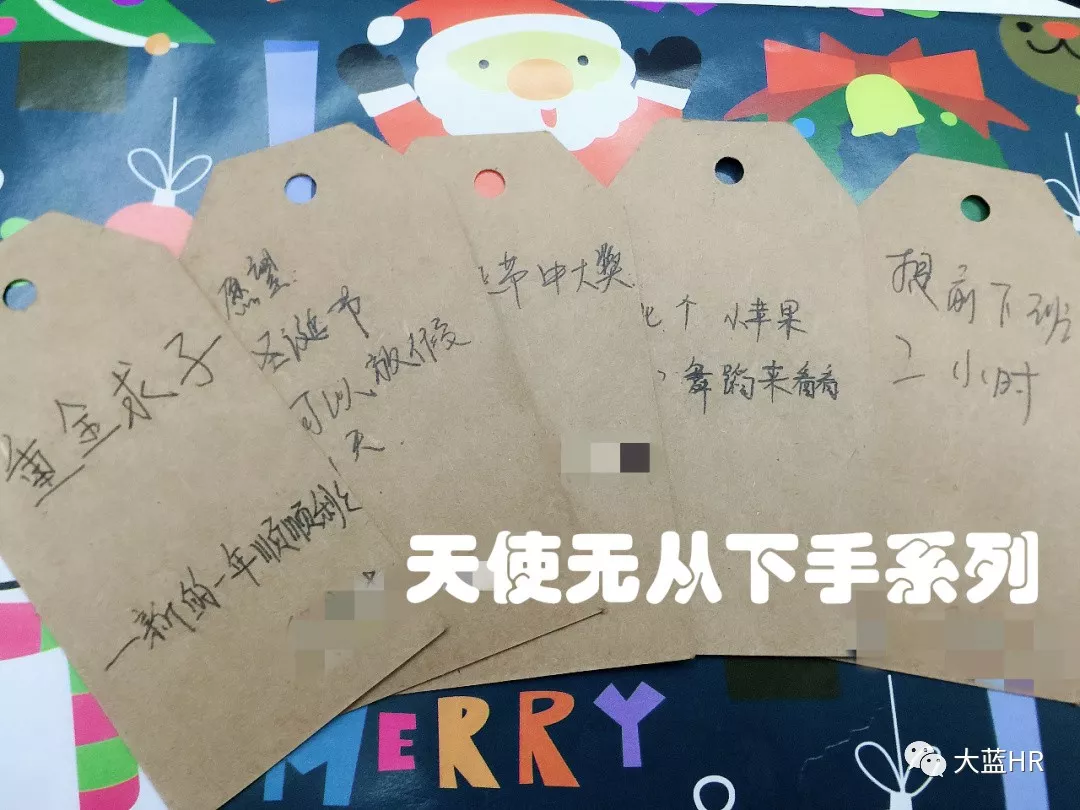 重金求子
—新的一年顺顺利
愿望:
圣诞节
可以放假
1天.
中大奖
个小苹果
舞蹈来看看
提前下班
二小时
天使无从下手系列
MERRY
大蓝HR